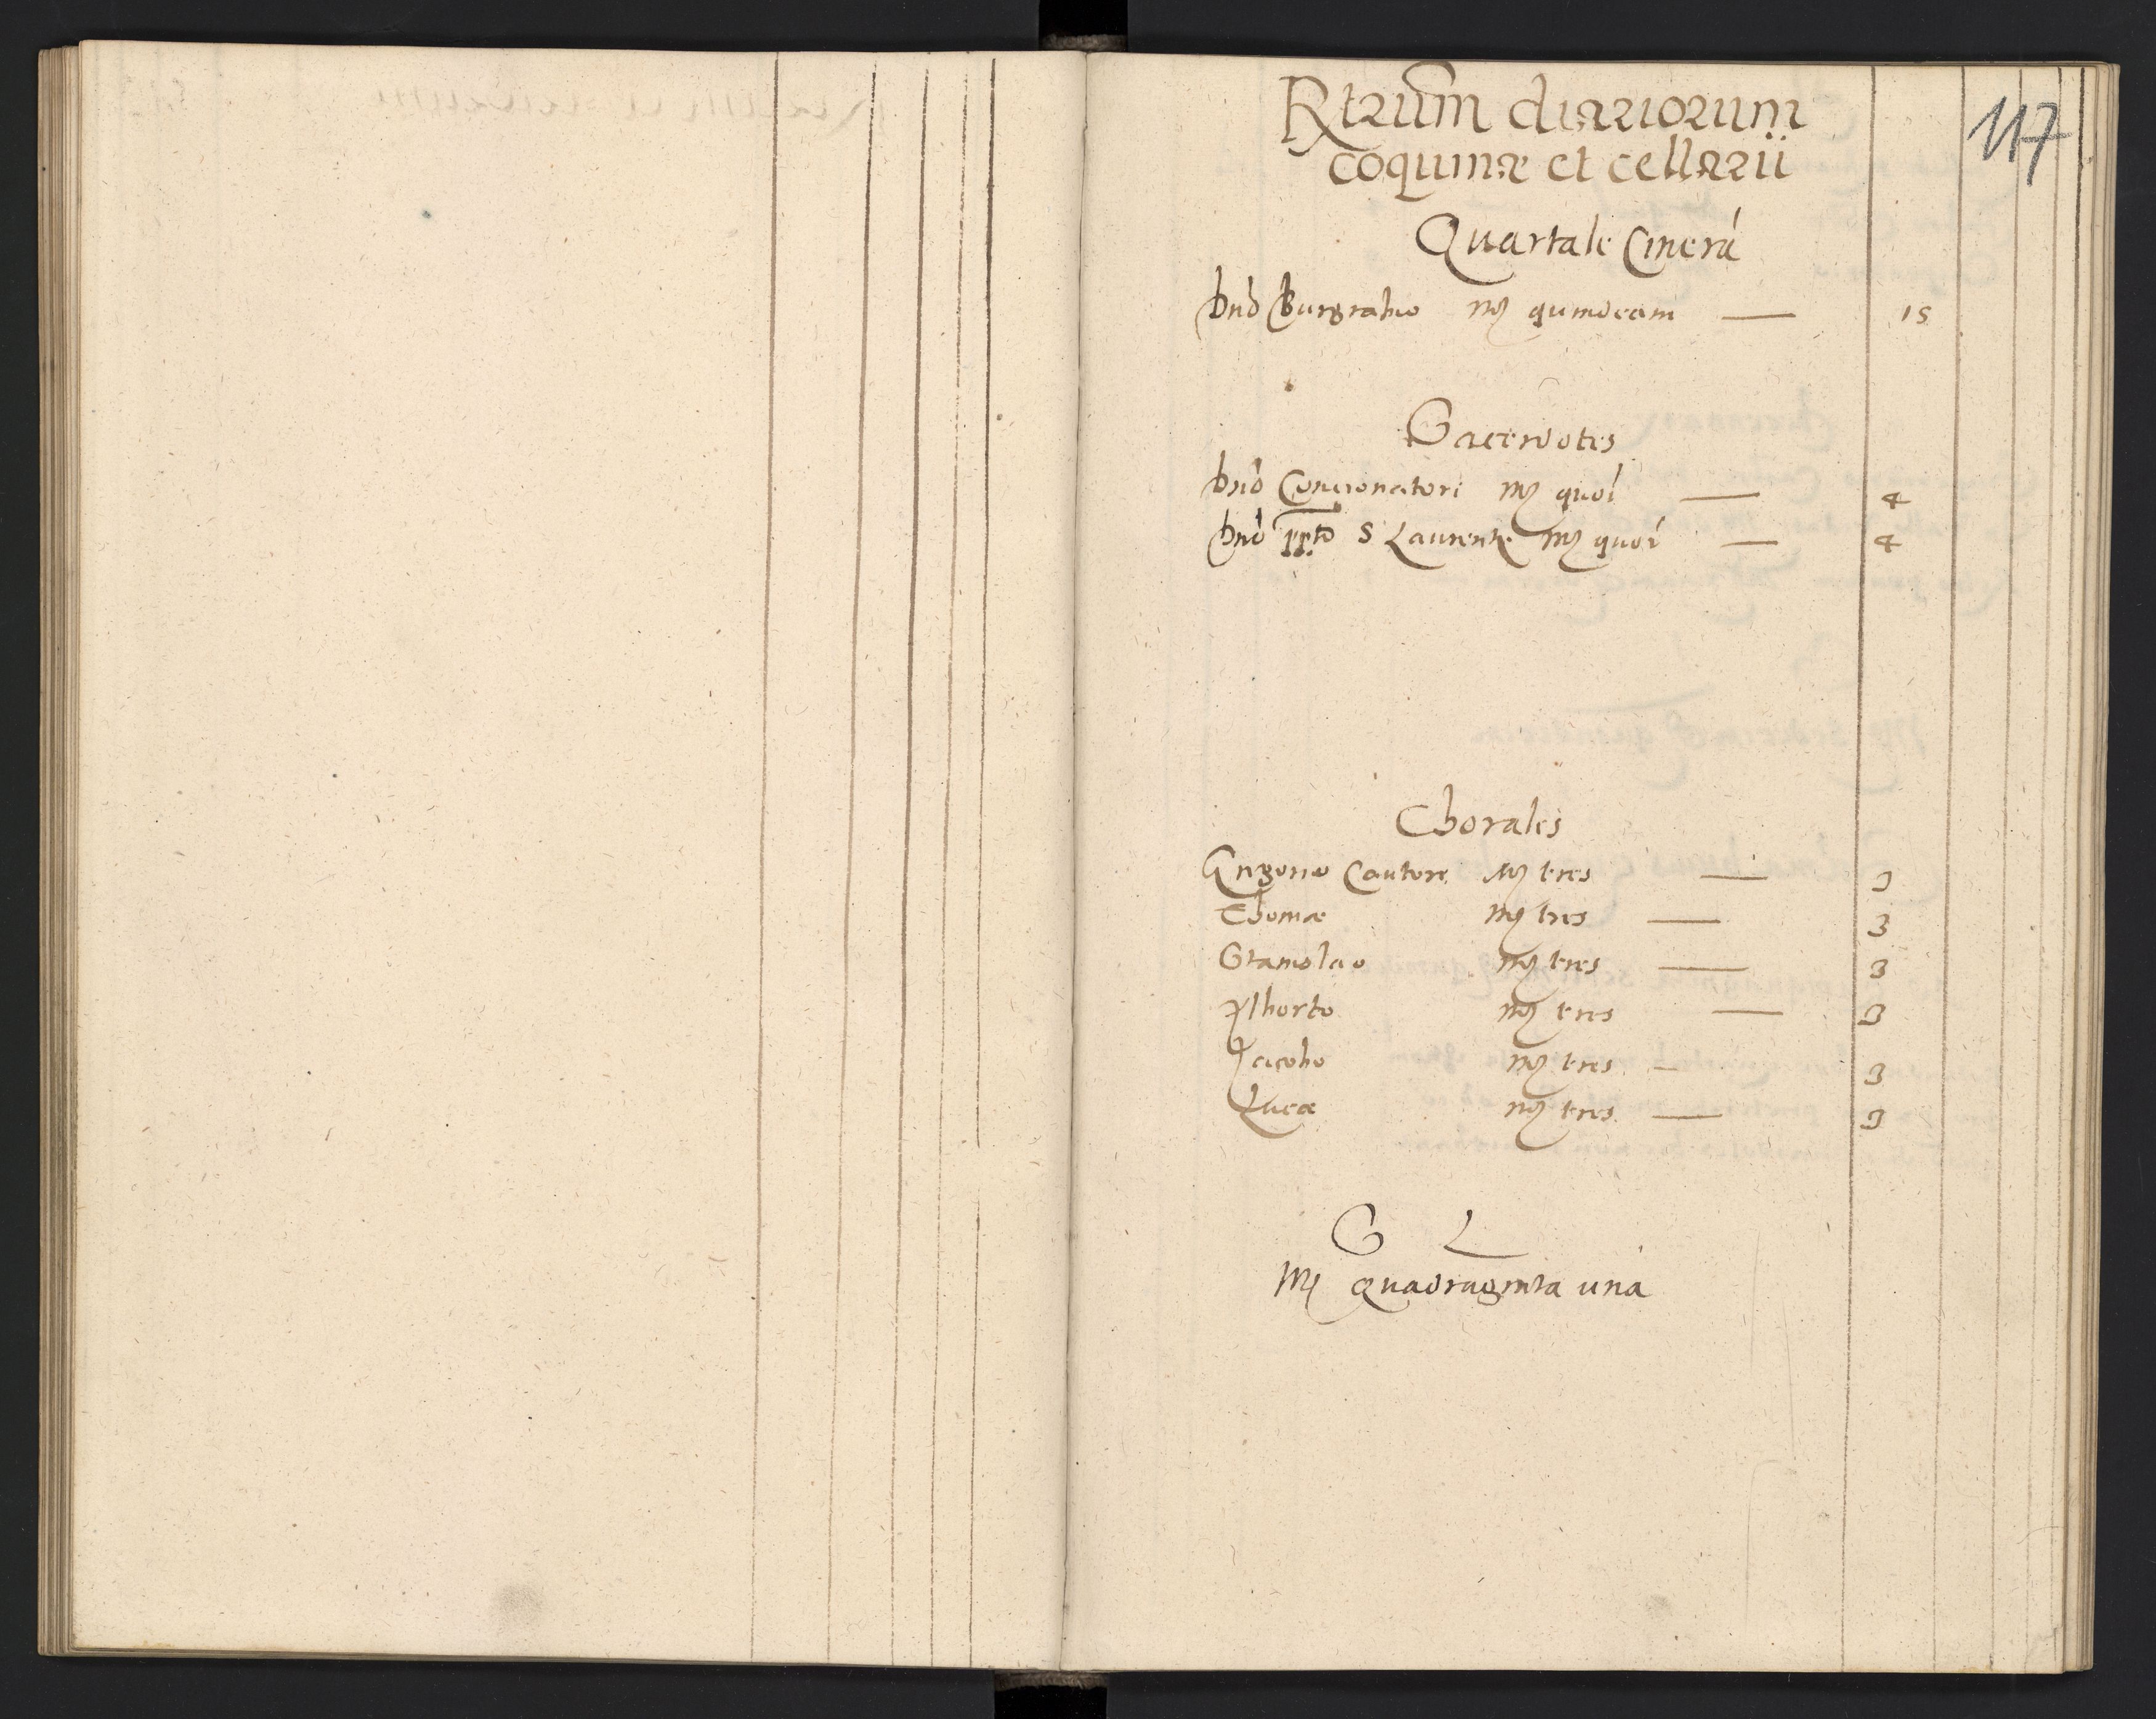 117
Rtrum diariorum
coquinæ et cellarii
Quartale Cinerũ
Dnò Burgrabio mͥ quindecim — 15
Sacerdotes
Dnò Concionatori mͥ quor — 4
Dnò ppto S Laurentii mͥ quor — 4
Chorales
Gregorio Cantore mͥ tres — 3
Thomæ mͥ tres — 3
Stanislao mͥ tres — 3
Alberto mͥ tres — 3
Jacobo mͥ tres — 3
Lucæ mͥ tres — 3
S L
mͥ quadraginta una